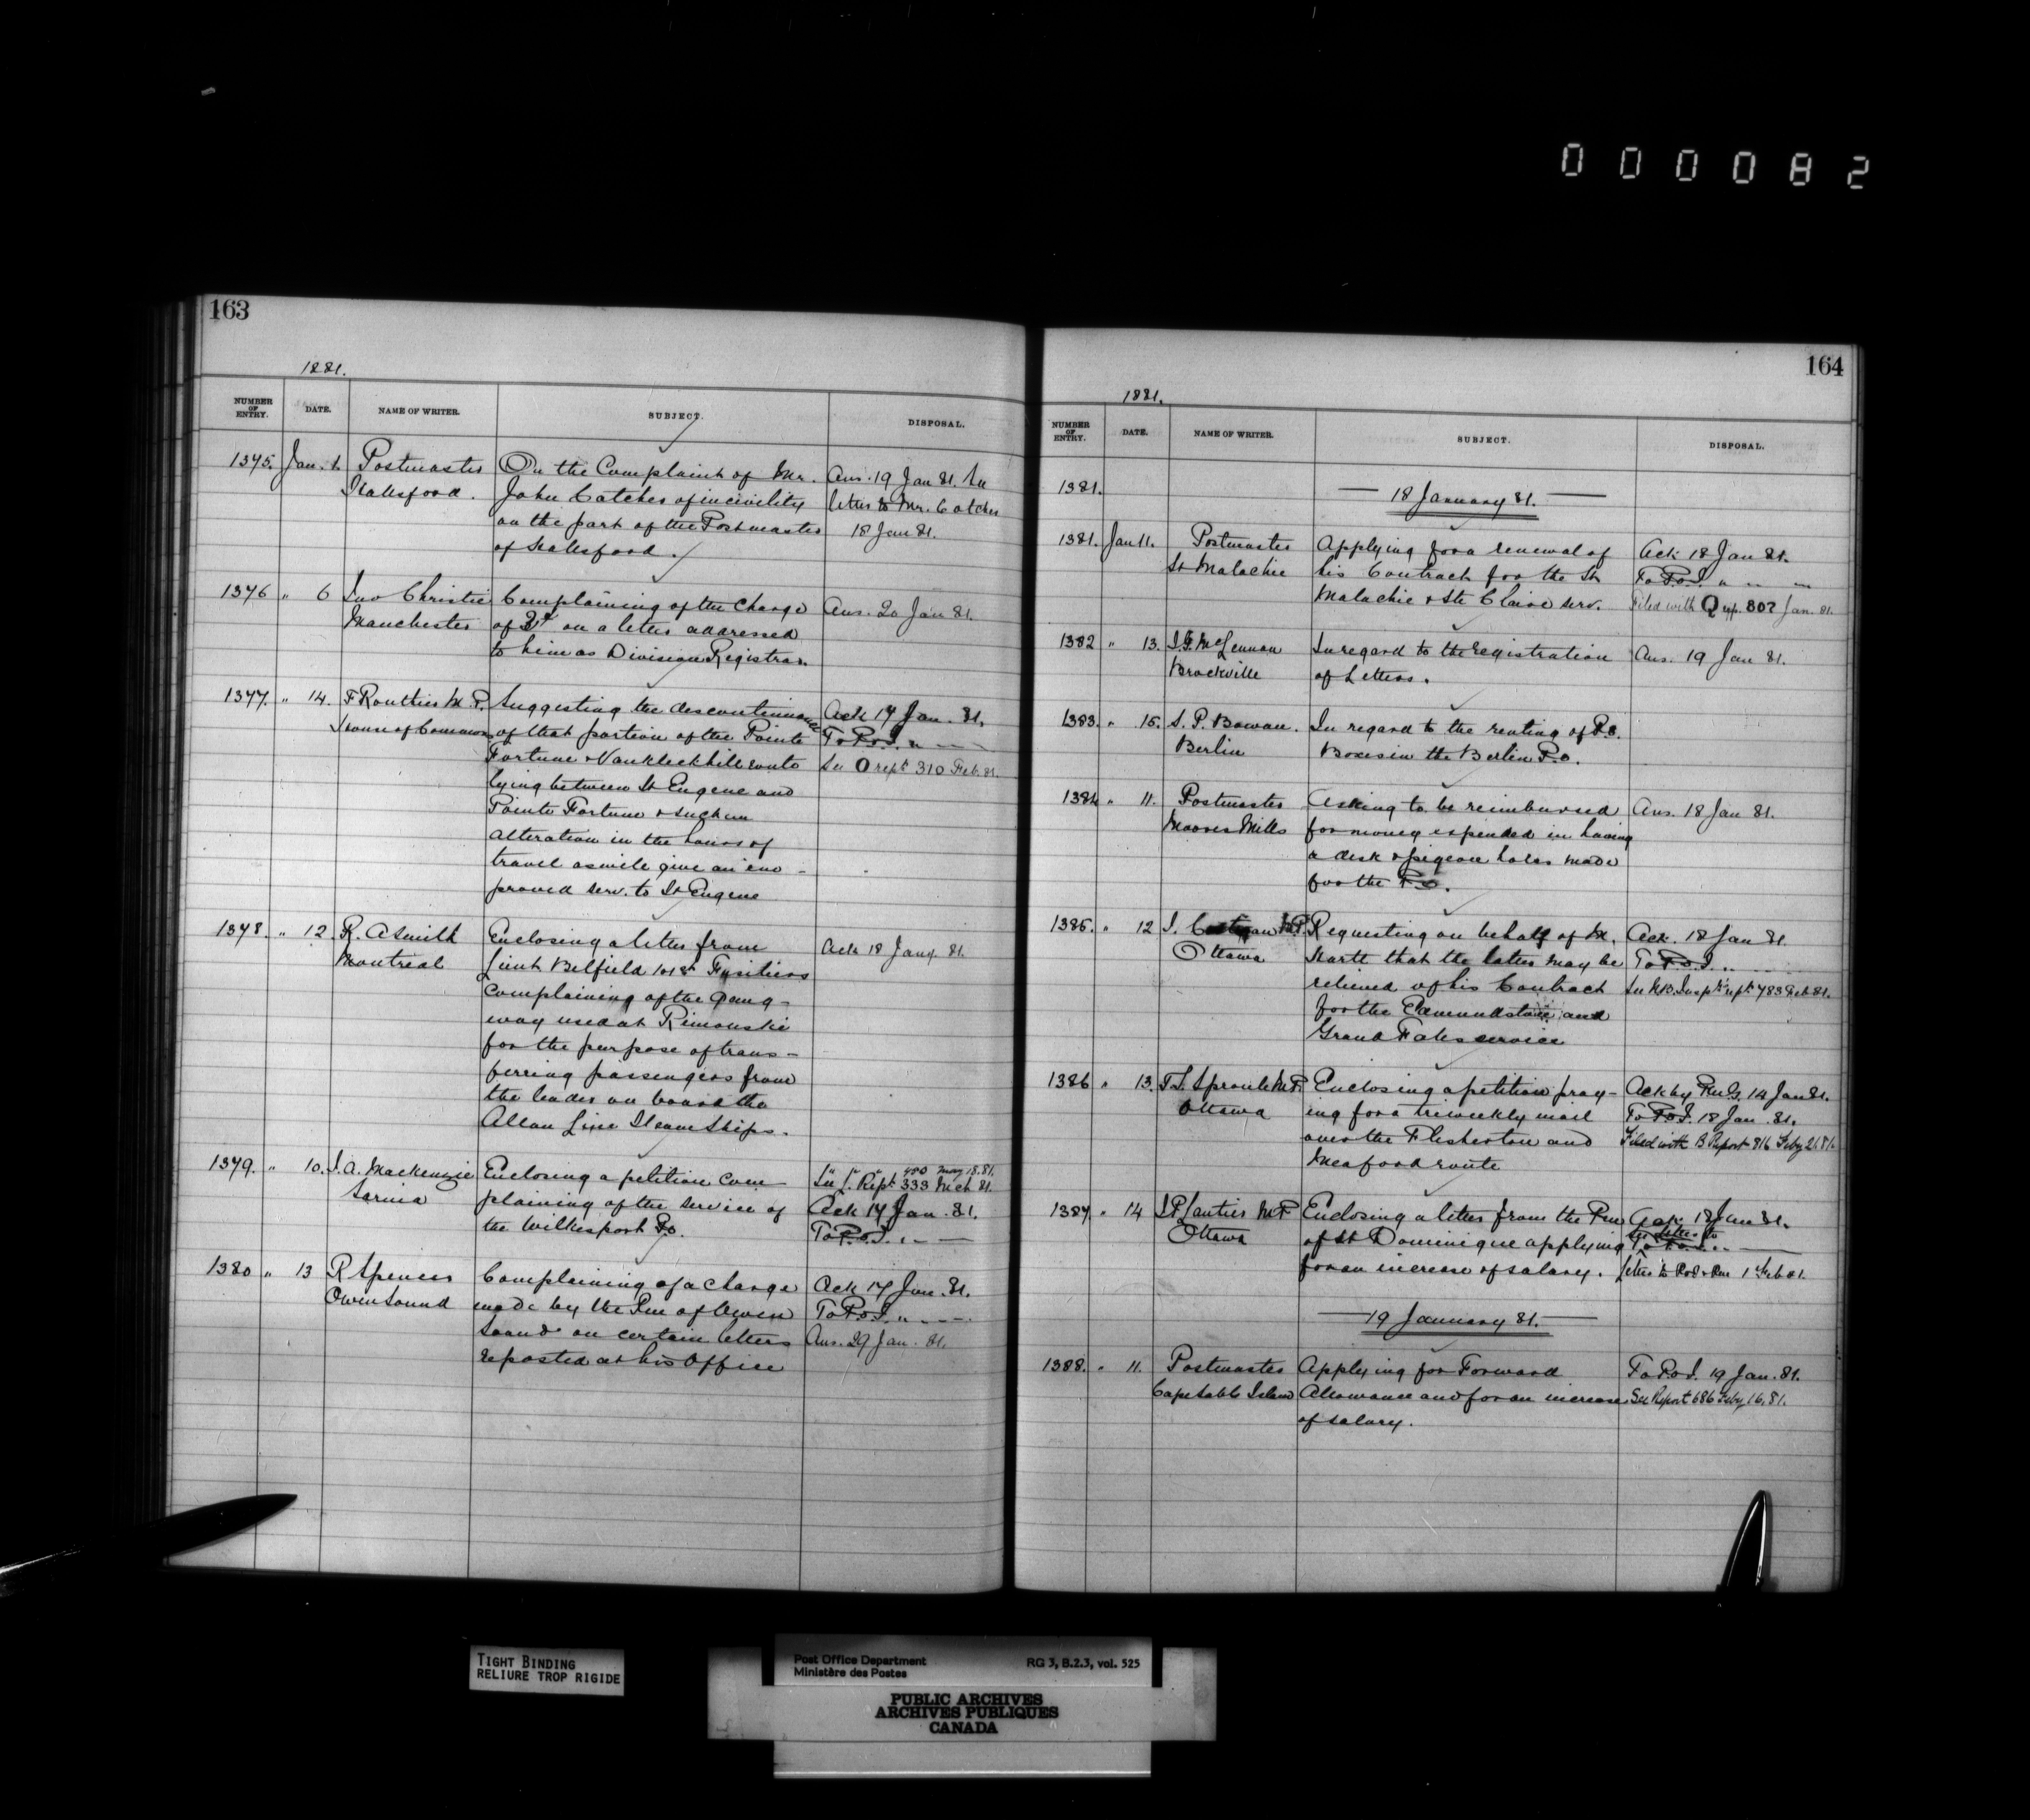 000082
163
1881.
NUMBER OF ENTRY. DATE. NAME OF WRITER. SUBJECT. DISPOSAL.
1375. Jan. Postmaster On the Complaint of Mr. Ans. 19 Jan 81. See
Kalesford. John Catcher of incivility letter to Mr. Catcher
on the part of the Postmaster 18 Jan 81.
of Kalesford.
1376 " 6 Jno Christie Complaining of the charge Ans. 20 Jan 81.
Manchester of on a letter addressed
to him as Division Registrar.
1377. " 14. F Routhier M.P. Suggesting the discontinuance Ack 17 Jan. 81.
House of Commons of that portion of the Pointe To P.O.I. " — —
Fortune & Vankleekhill route See O rept 310 Feb. 81.
lying between St Eugene and
Pointe Fortune & such an
alteration in the hours of
travel as will give an im-
proved serv. to St Eugene
1378. " 12. R. A Smith Enclosing a letter from Ack 18 Jany. 81.
Montreal Lieut Belfield 101st Fusiliers
complaining of the gang-
way used at Rimouski
for the purpose of trans-
ferring passengers from
the tender on board the
Allan Line Steamships.
" " " 480 May 18.81.
1379. " 10. J. A. Mackenzie Enclosing a petition com- See L. Rept 333 Mch 81.
Sarnia plaining of the service of Ack 17 Jan. 81.
the Wilkesport P.O. To P.O.I. " — —
1380 " 13 R Spencer Complaining of a charge Ack 17 Jan. 81.
Owen Sound made by the Pm of Owen To P.O.I. " — —
Sound on certain letters Ans. 29 Jan. 81.
reposted at his Office
164
1881.
NUMBER OF ENTRY. DATE. NAME OF WRITER. SUBJECT. DISPOSAL.
1381. — 18 January 81. —
1381. Jan 11. Postmaster Applying for a renewal of Ack 18 Jan 81.
St Malachie his Contract for the St To P.O.I. " " —
Malachie & Ste Claire serv. Filed with Q rep. 802 Jan. 81.
1382 " 13. J.G. McLennan In regard to the registration Ans. 19 Jan 81.
Brockville of Letters.
1383. " 15. S. P. Bowman. In regard to the renting of P.O.
Berlin Boxes in the Berlin P.O.
1384 " 11. Postmaster Asking to be reimbursed Ans. 18 Jan 81.
Moores Mills for money expended in having
a desk & pigeon holes made
for the P.O.
1385. " 12 J. Costigan M.P. Requesting on behalf of M. Ack. 18 Jan 81.
Ottawa Hartt that the latter may be To P.O.I. " — —
relieved of his Contract See N.B. Inspr rept 783 Feb 81.
for the Edmundston and
Grand Falls service
1386 " 13. T.S. Sproule M.P. Enclosing a petition pray- Ack by P.M.G. 14 Jan 81.
Ottawa ing for a triweekly mail To P.O.I. 18 Jan. 81.
over the Flesherton and Filed with B Report 816 Feby 21.81.
Meaford route
1387. " 14 J.P. Lantier M.P. Enclosing a letter from the Pm Ack 18 Jan 81.
Ottawa of St Dominique applying To P.O.I. " —
for an increase of salary. letter to P.O.I. & Pm 1 Feb 81.
— 19 January 81. —
1388. " 11. Postmaster Applying for Forward To P.O.I. 19 Jan. 81.
Cape Sable Island Allowance and for an increase See Report 686 Feby 16, 81.
of salary.
TIGHT BINDING
RELIURE TROP RIGIDE
Post Office Department RG 3, B.2.3, vol. 525
Ministère des Postes
PUBLIC ARCHIVES
ARCHIVES PUBLIQUES
CANADA